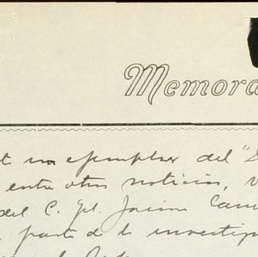 Memora
un ejemplar del "D
entre otras noticias, v
del C. Gl. Jaime Cam
parte de la investig